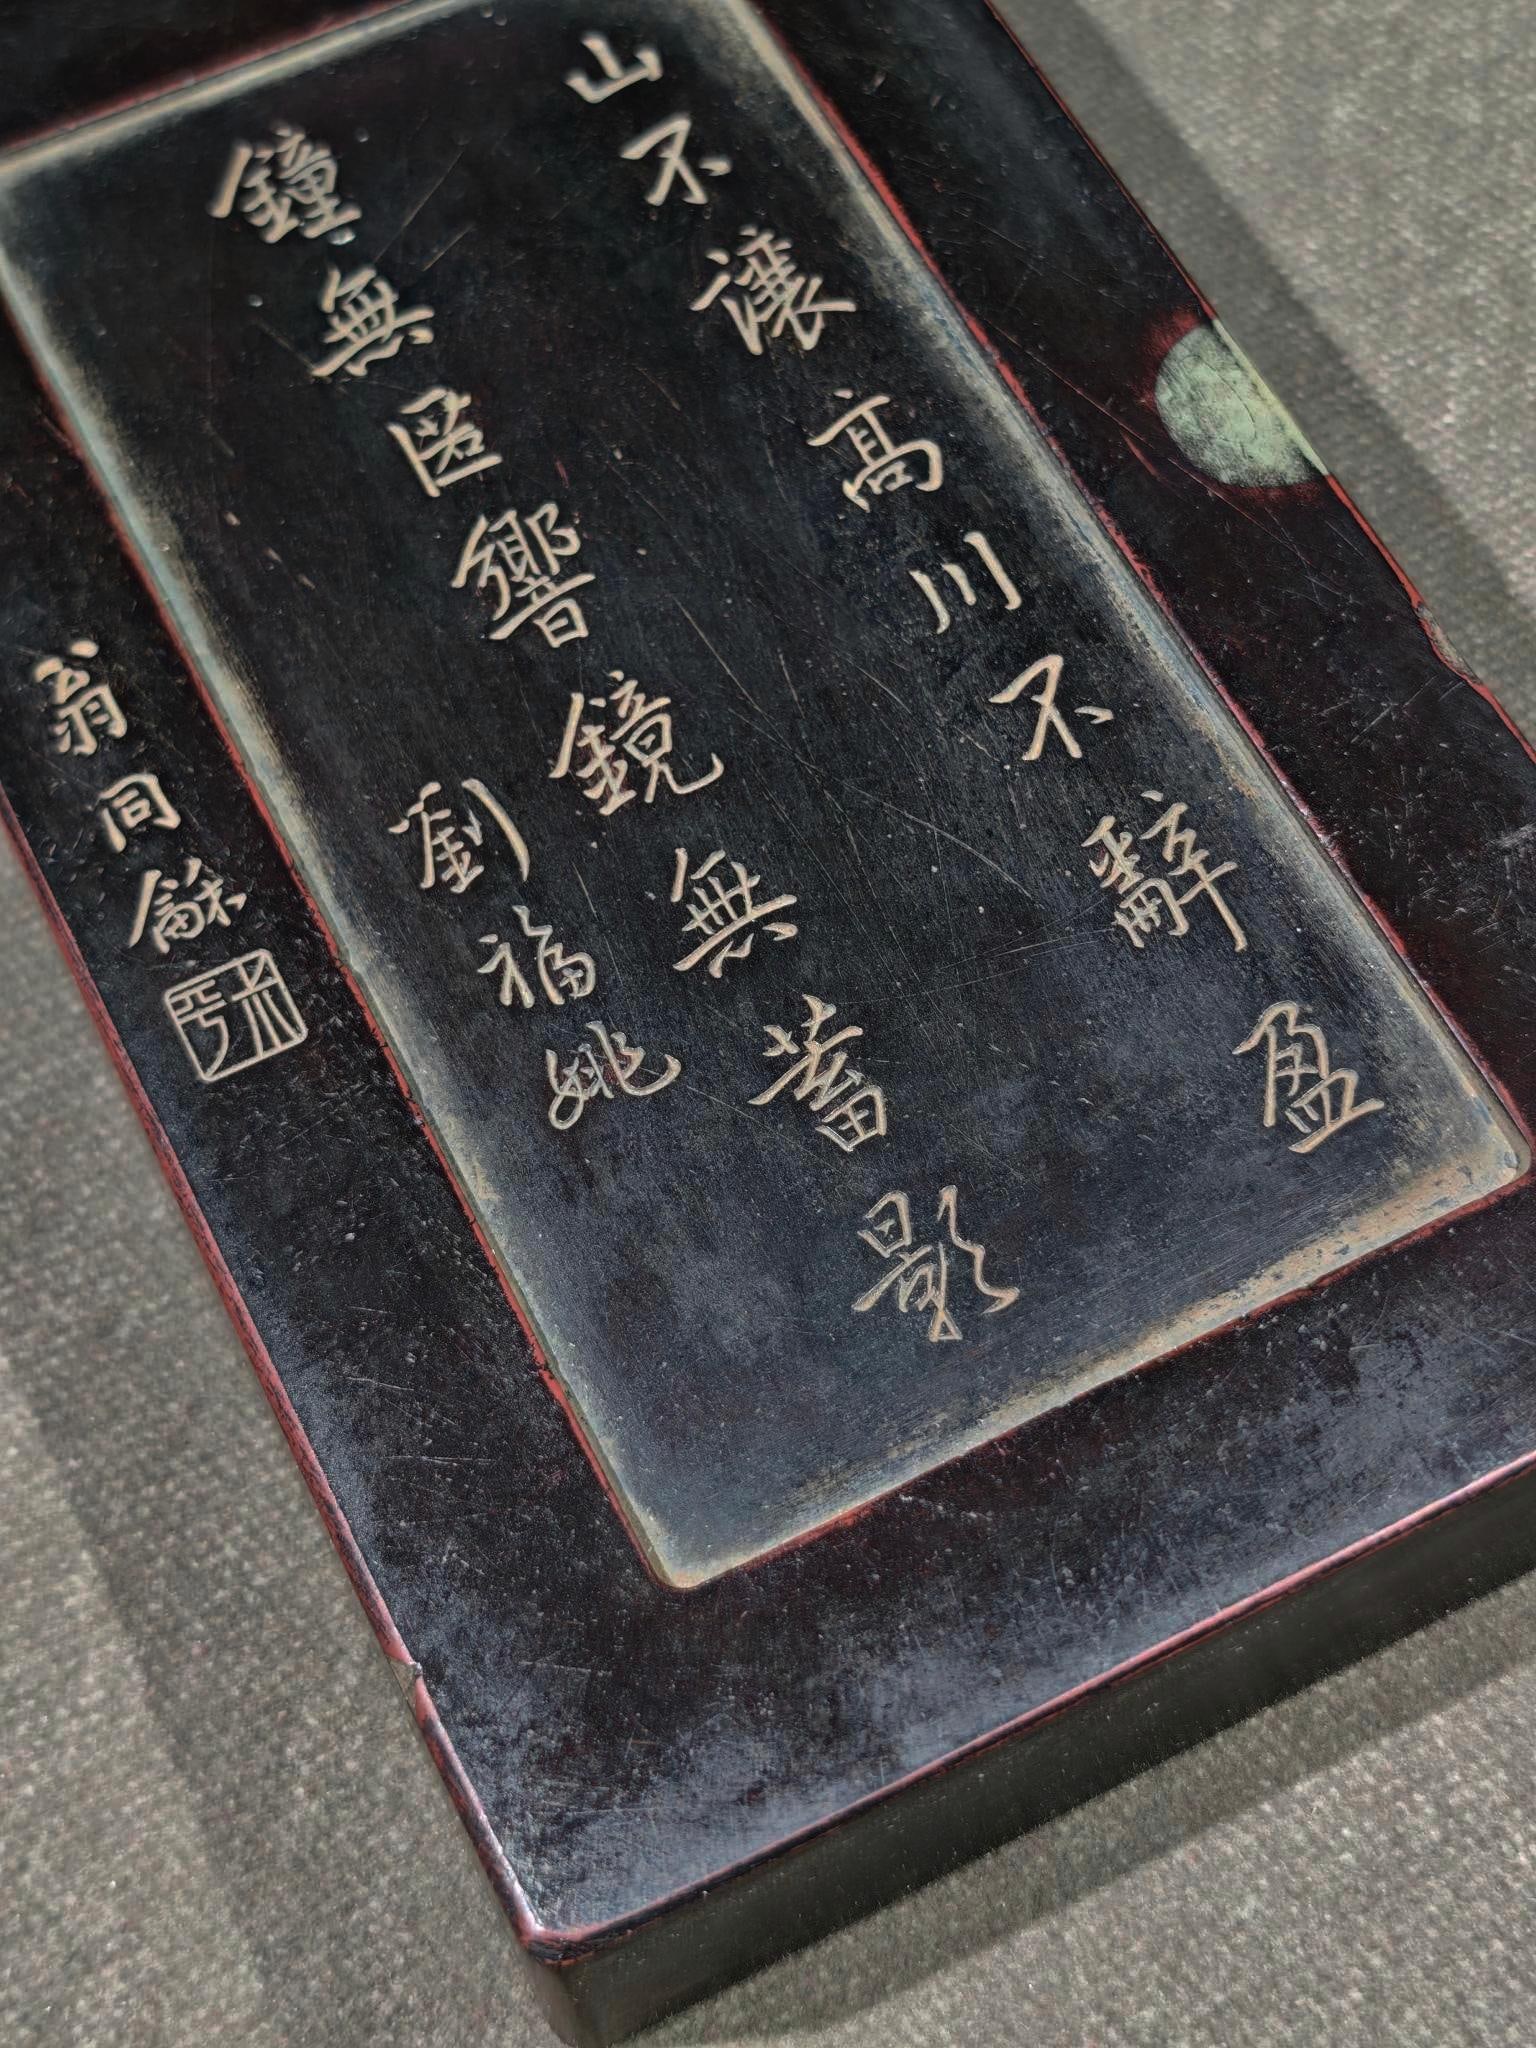 山不讓高川不辭盈
鐘無匿響鏡無蓄影
劉福姚
翁同龢
叔平